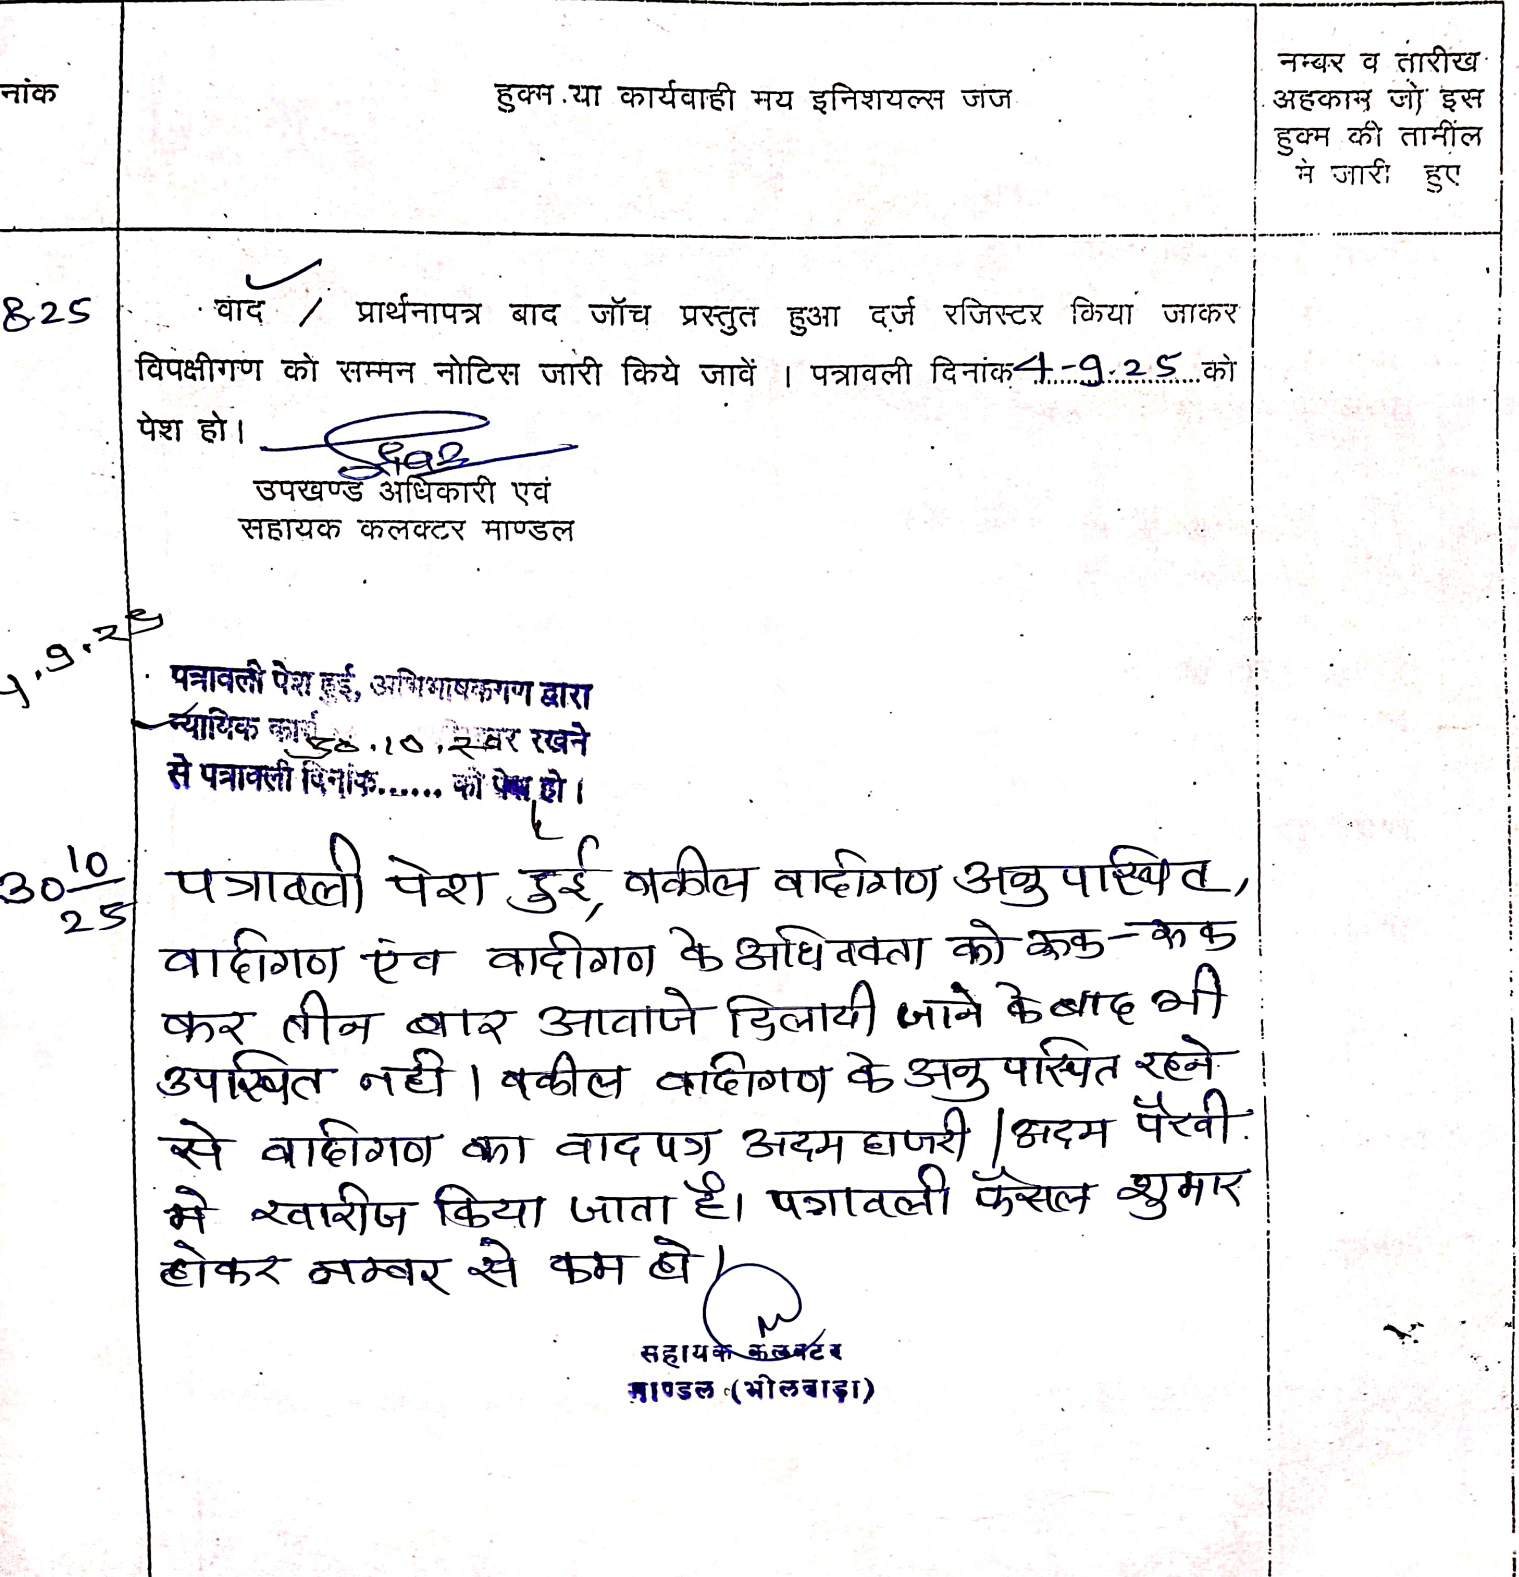 नांक
हुक्म या कार्यवाही मय इनिशयल्स जज
नम्बर व तारीख
अहकाम जो इस
हुक्म की तामील
में जारी हुए
8.25
वाद / प्रार्थनापत्र बाद जॉच प्रस्तुत हुआ दर्ज रजिस्टर किया जाकर
विपक्षीगण को सम्मन नोटिस जारी किये जावें । पत्रावली दिनांक 4-9.25 को
पेश हो।
उपखण्ड अधिकारी एवं
सहायक कलक्टर माण्डल
4.9.25
पत्रावली पेश हुई, अभिभाषकगण द्वारा
न्यायिक कार्य रखने
30.10.2
से पत्रावली दिनांक...... को पेश हो।
30 10/25
पत्रावली पेश हुई, वकील वादीगण अनुपस्थित,
वादीगण एंव वादीगण के अधिवक्ता को रूक-रूक
कर तीन बार आवाजे दिलायी जाने के बाद भी
उपस्थित नही। वकील वादीगण के अनुपस्थित रहने
से वादीगण का वादपत्र अदम हाजरी/अदम पैरवी
मे खारीज किया जाता है। पत्रावली फैसल शुमार
होकर नम्बर से कम हो।
सहायक कलक्टर
माण्डल (भीलवाड़ा)